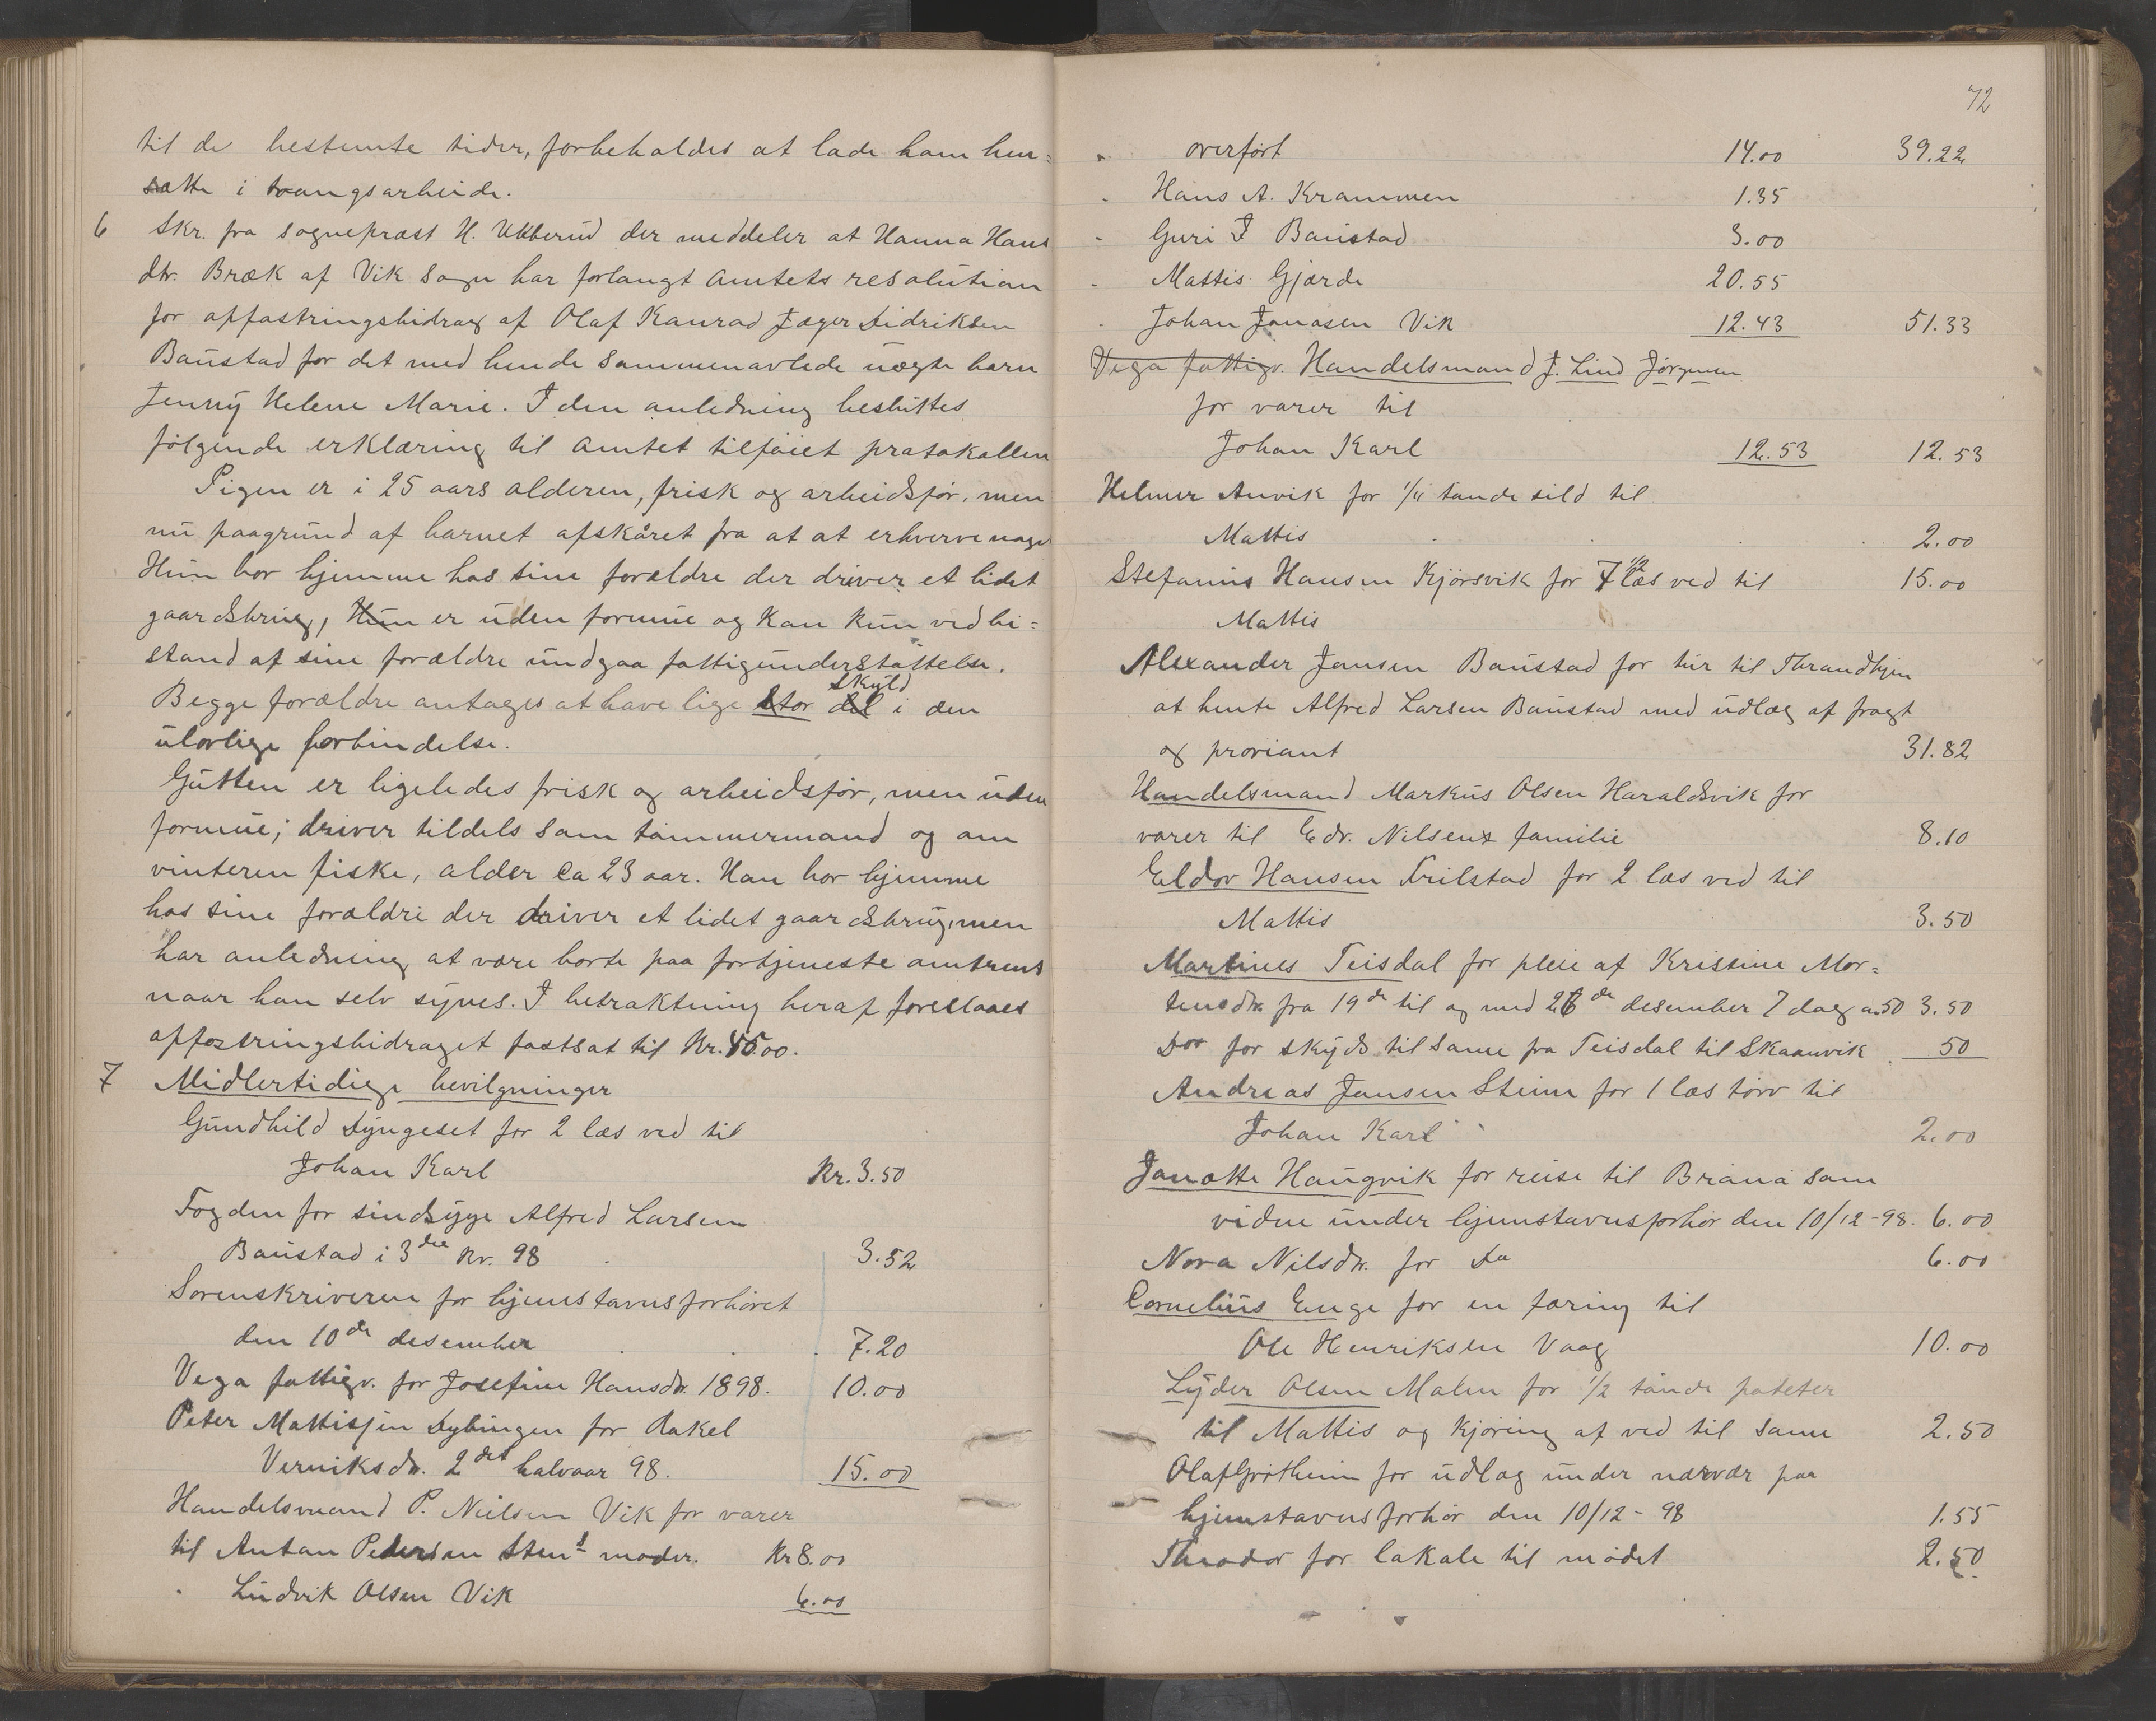 til de bestemte tider, forbeholdes at lade ham hen=
sætte i tvangsarbeide.
6 Skr. fra sognepræst H. Ukkerud der meddeler at Hanna Hans
dtr. Bræk af Vik sogn har forlangt Amtets resolution
for opfostringsbidrag af Olaf Konrad Jæger Didriksen
Baustad for det med hende sammenavlede uægte barn
Jenny Helene Marie. I den anledning besluttes
følgende erklæring til Amtet tilføiet protokollen
Pigen er i 25 aars alderen, frisk og arbeidsfør, men
nu paagrund af barnet afskåret fra at at erhverve noge
Hun bor hjemme hos sine forældre der driver et lidet
gaardsbrug, Hun er uden formue og kan kun ved bi=
stand af sine forældre undgaa fattigunderstøttelse.
Begge forældre antages at have lige stor del skyld i den
ulovlige forbindelse.
Gutten er ligeledes frisk og arbeidsfør, men uden
formue; driver tildels som tømmermand og om
vinteren fiske, alder ca 23 aar. Han bor hjemme
hos sine forældre der driver et lidet gaardsbrug, men
har anledning at være borte paa fortjeneste omtrent
naar han selv synes. I betraktning heraf foreslaaes
opfostringsbidraget fastsat til Kr. 45.00.
7 Midlertidige bevilgninger
Gundhild Dyngeset for 2 læs ved til
Johan Karl Kr. 3.50
Fogden for sindsyge Alfred Larsen
Baustad i 3die Kv. 98 3.52
Sorenskriveren for hjemstavnsforhøret
den 10de desember 7.20
Vega fattigv. for Josefine Hansdtr. 1898. 10.00
Peter Mattisjen Dybingen for Rakel
Verniksdtr. 2det halvaar 98. 15.00
Handelsmand P. Nielsen Vik for varer
til Anton Pedersen Stens moder. Kr 8.00
" Ludvik Olsen Vik 6.00
72
" overført 14.00 39.22
" Hans A. Krammen 1.35
" Guri J Baustad 3.00
" Mattis Gjærde 20.55
" Johan Jonasen Vik 12.43 51.33
Vega fattigv. Handelsmand J. Lind Jørgensen
for varer til
Johan Karl 12.53 12.53
Helmer Anvik for 1/4 tønde sild til
Mattis 2.00
Stefanus Hansen Kjørsvik for 7 1/2 læs ved til 15.00
Mattis
Alexander Jansen Baustad for tur til Throndhjem
at hente Alfred Larsen Baustad med udlæg af fragt
og proviant 31.82
Handelsmand Markus Olsen Haraldsvik for
varer til Edv. Nilsens familie 8.10
Eldor Hansen Trilstad for 2 læs ved til
Mattis 3.50
Martines Teisdal for pleie af Kristine Mor=
tensdtr. fra 19de til og med 26de desember 7 dag a .50 3.50
Do for skyds til same fra Teisdal til Skaanvik 50
Andreas Jansen Stene for 1 læs torv til
Johan Karl 2.00
Janotte Haugvik for reise til Brianá som
vidne under hjemstavnsforhør den 10/12-98. 6.00
Nora Nilsdtr. for Do 6.00
Cornelius Enge for en færing til
Ole Henriksen Vaag 10.00
Lyder Olsen Malm for 1/2 tønde poteter
til Mattis og kjøring af ved til same 2.50
Olaf Grøtheim for udlæg under nærvær paa
hjemstavnsforhør den 10/12-98 1.55
Theodor for lokale til mødet 2.50